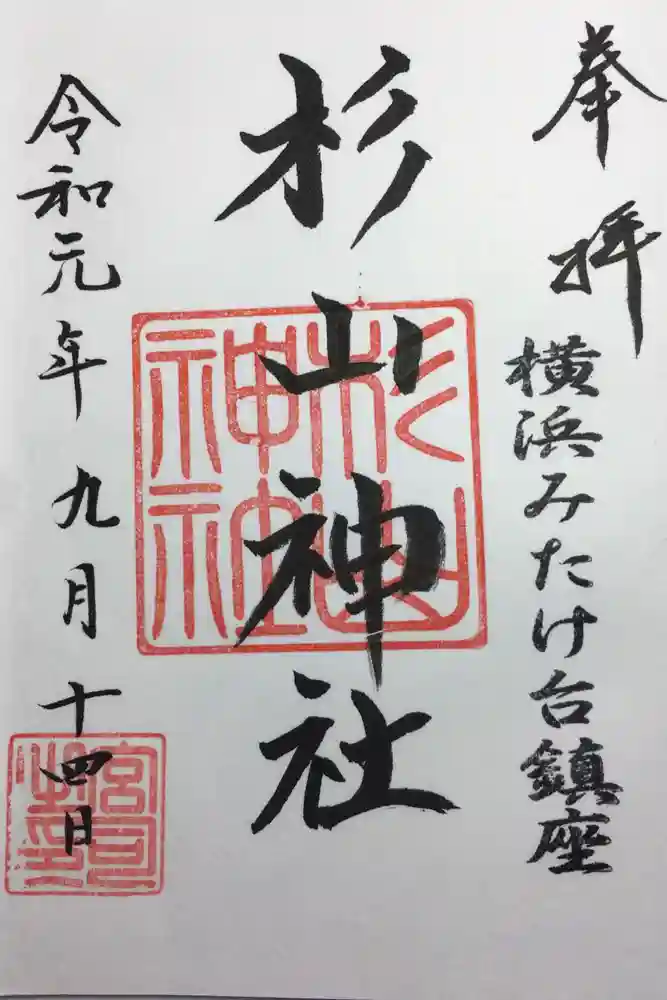 奉拝
横浜みたけ台鎮座
杉山神社
杉山神社
令和元年九月十四日
宮司之印